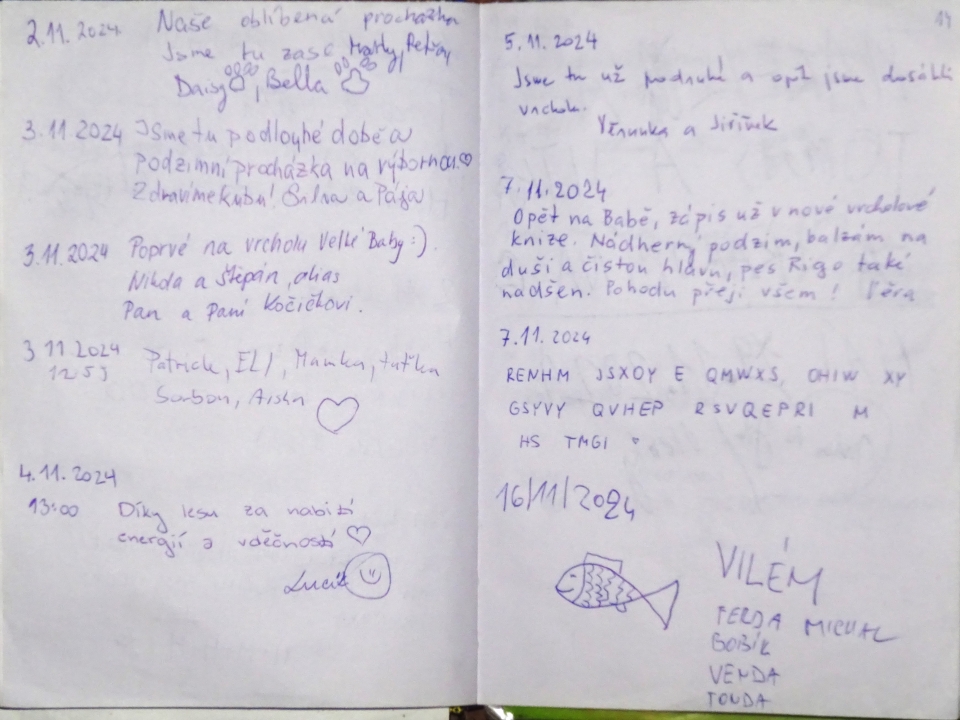 2.11.2024 Naše oblíbená procházka
Jsme tu zase
Daisy, Bella
3.11.2024 Jsme tu podlouhé době a
podzimní procházka na výbornou ♡
Zdravíme kubu! a Pája
3.11.2024 Poprvé na vrcholu Velké Baby :).
Nikola a Štěpán, alias
Pan a Paní Kočičkovi.
3 11 2024 Patrick, Eli, Mamka, taťka
12 53
♡
4.11.2024
13:00 Díky lesu za nabití
energií a vděčností ♡
Lucie
14
5.11.2024
Jsme tu už podruhé a opět jsme dosáhli
vrcholu.
a Jiřínek
7.11.2024
Opět na Babě, zápis už v nové vrcholové
knize. Nádherný podzim, balzám na
duši a čistou hlavu, pes Rigo také
nadšen. Pohodu přeji všem! Věra
7.11.2024
RENHM JSXOY E QMWXS, OHIW XY
GSYVY QVHEP RSVQEPRI M
HS TMGI
16/11/2024
VILÉM
FERDA MICHAL
BOBÍK
VENDA
TONDA